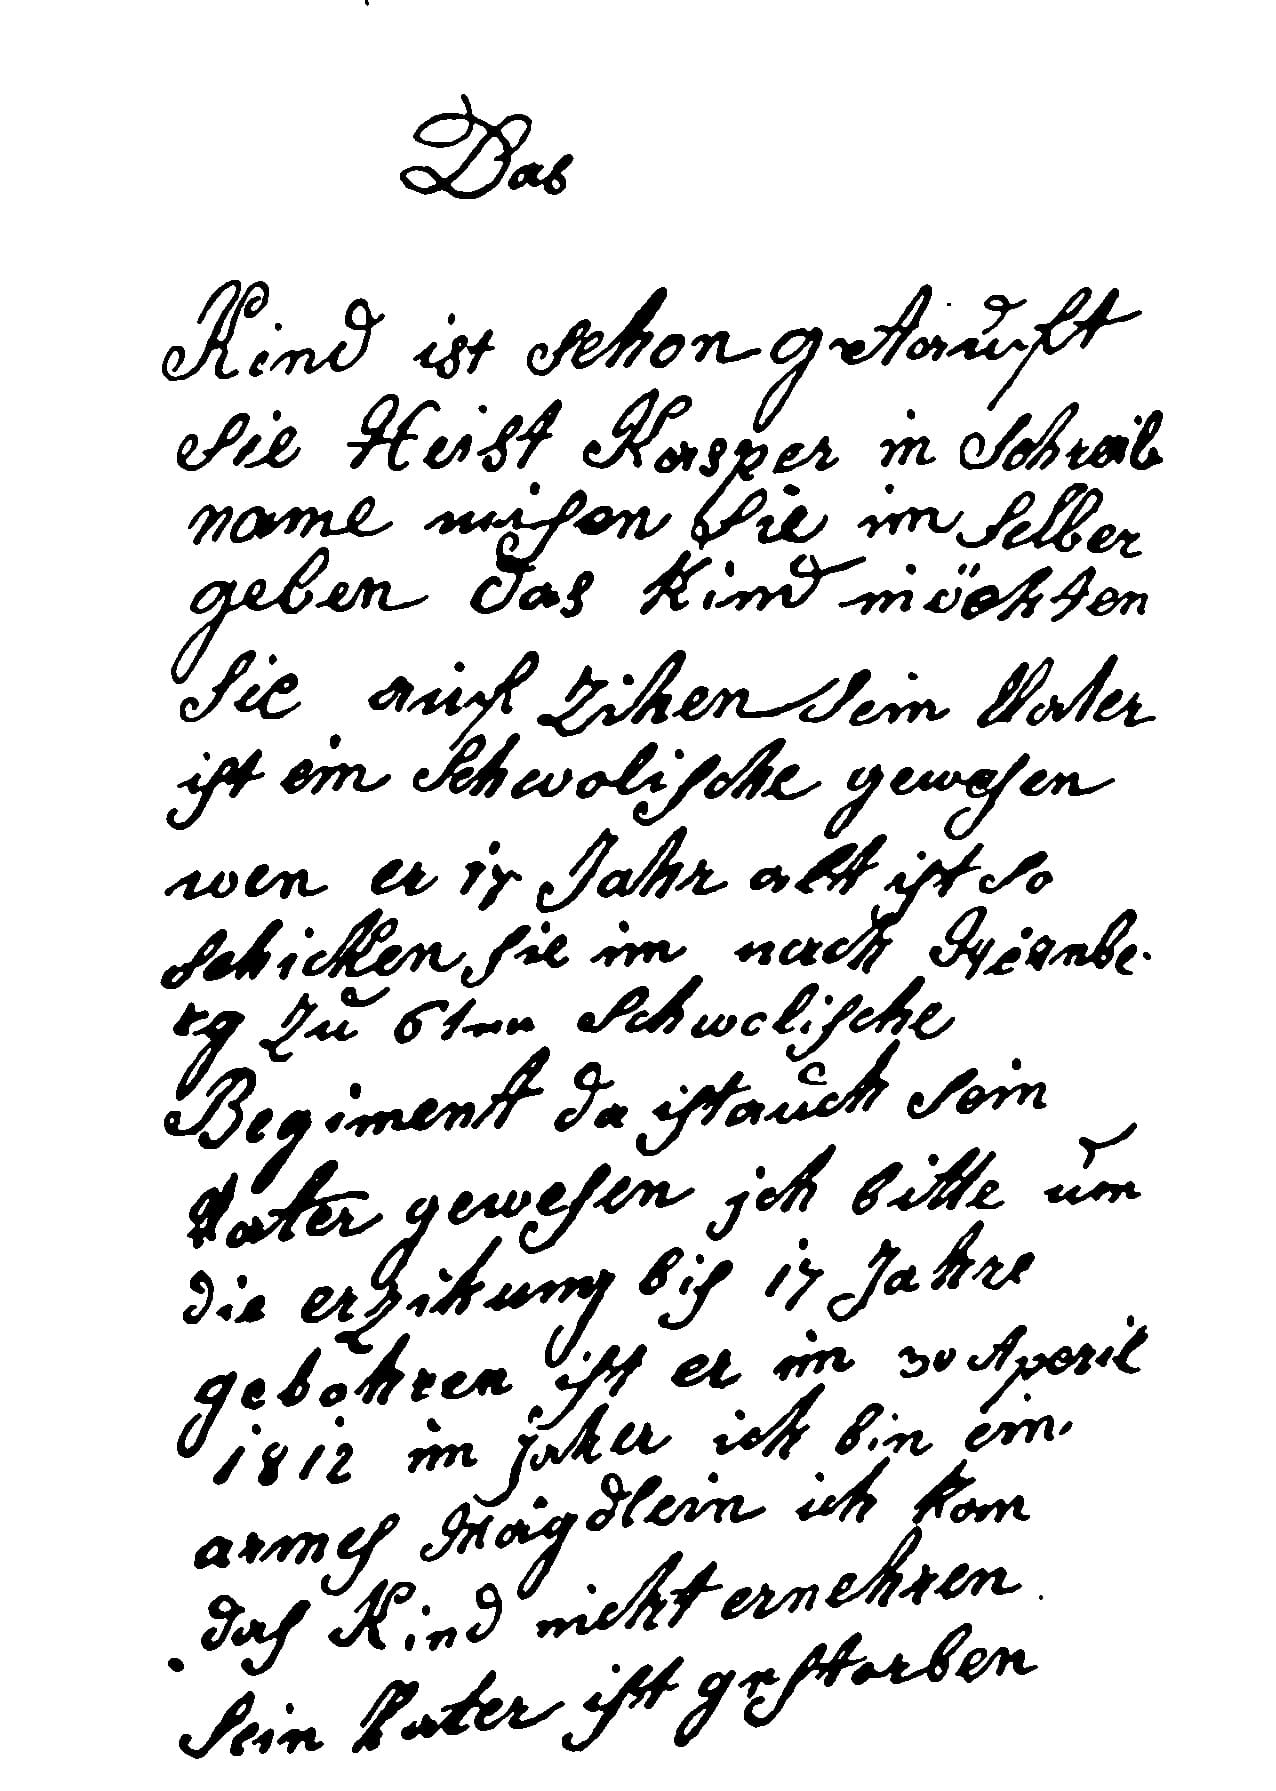 Das
Kind ist schon getauft
Sie Heist Kasper in Schreib
name misen Sie im Selber
geben das Kind möchten
Sie auf Zihen Sein Vater
ist ein Schwolische gewesen
wen er 17 Jahr alt ist So
schicken Sie im nach Nirnbe
rg Zu 6ten Schwolische
Begiment da ist auch Sein
Vater gewesen ich bitte um
die erzikung bis 17 Jahre
gebohren ist er im 30 Aperil
1812 im Jaher ich bin ein
armes Mägdlein ich kan
das Kind nicht ernehren
Sein Vater ist gestorben